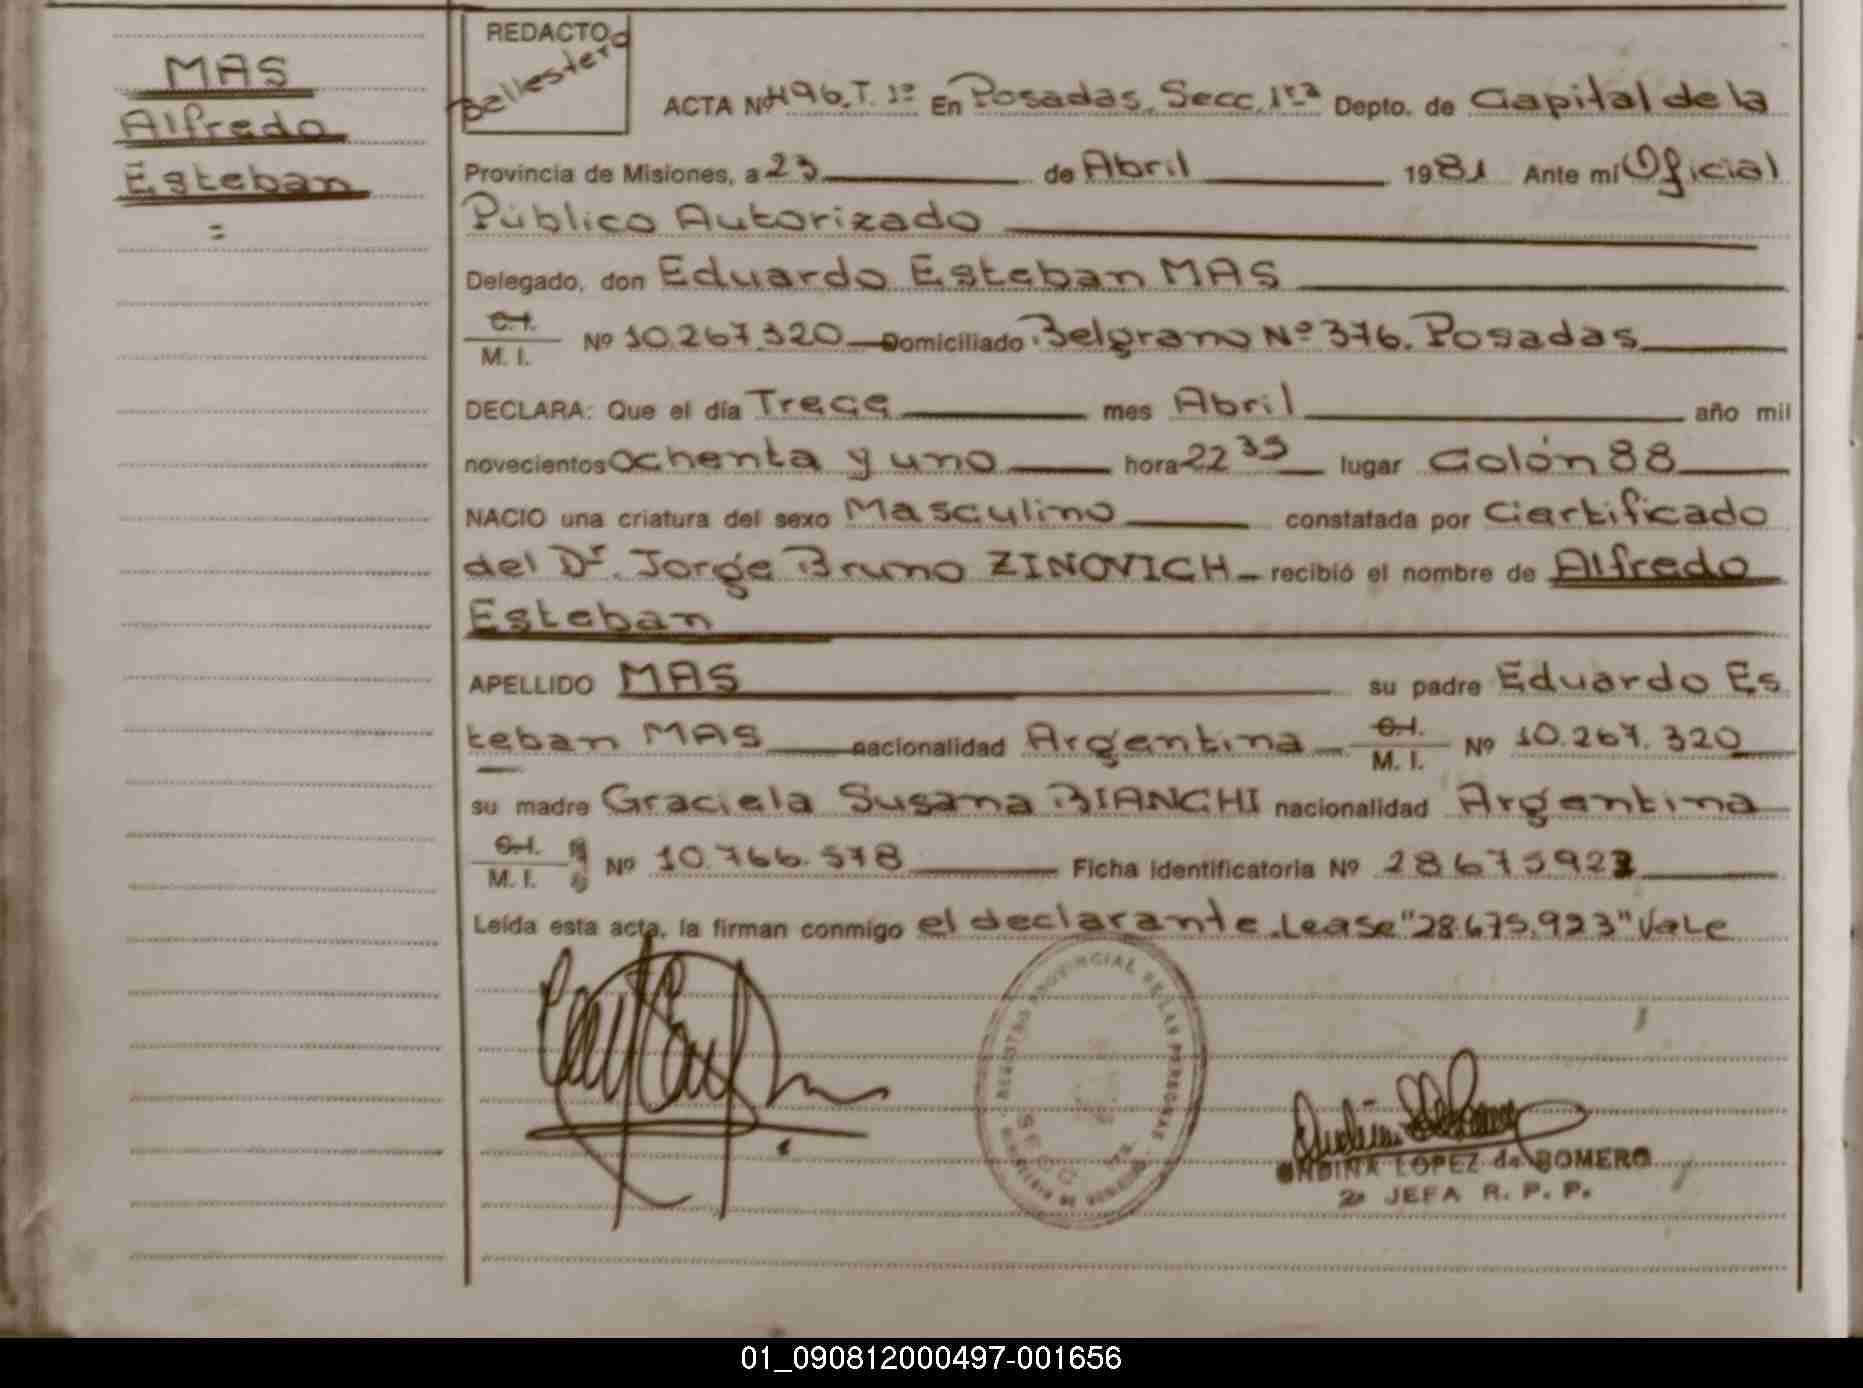 MAS
Alfredo
Esteban
=
REDACTO
Ballestero
ACTA Nº 496. T. 1º En Posadas, Secc. 1ra Depto. de Capital de la
Provincia de Misiones, a 23 de Abril 1981 Ante mí Oficial
Público Autorizado
Delegado, don Eduardo Esteban MAS
C.I.
M. I. Nº 10.267.320 Domiciliado Belgrano Nº 376. Posadas
DECLARA: Que el día Trece mes Abril año mil
novecientos ochenta y uno hora 22 35 lugar Colón 88
NACIO una criatura del sexo Masculino constatada por Certificado
del Dr. Jorge Bruno ZINOVICH recibió el nombre de Alfredo
Esteban
APELLIDO MAS su padre Eduardo Es
teban MAS nacionalidad Argentina C.I.
M. I. Nº 10.267.320
su madre Graciela Susana BIANCHI nacionalidad Argentina
C.I.
M. I. Nº 10.766.578 Ficha identificatoria Nº 28675923
Leída esta acta, la firman conmigo el declarante. Lease "28.675.923" Vale
REGISTRO PROVINCIAL DE LAS PERSONAS
SECC. 1ra.
MINISTERIO DE GOBIERNO
ONDINA LOPEZ de ROMERO
2a JEFA R. P. P.
01_090812000497-001656